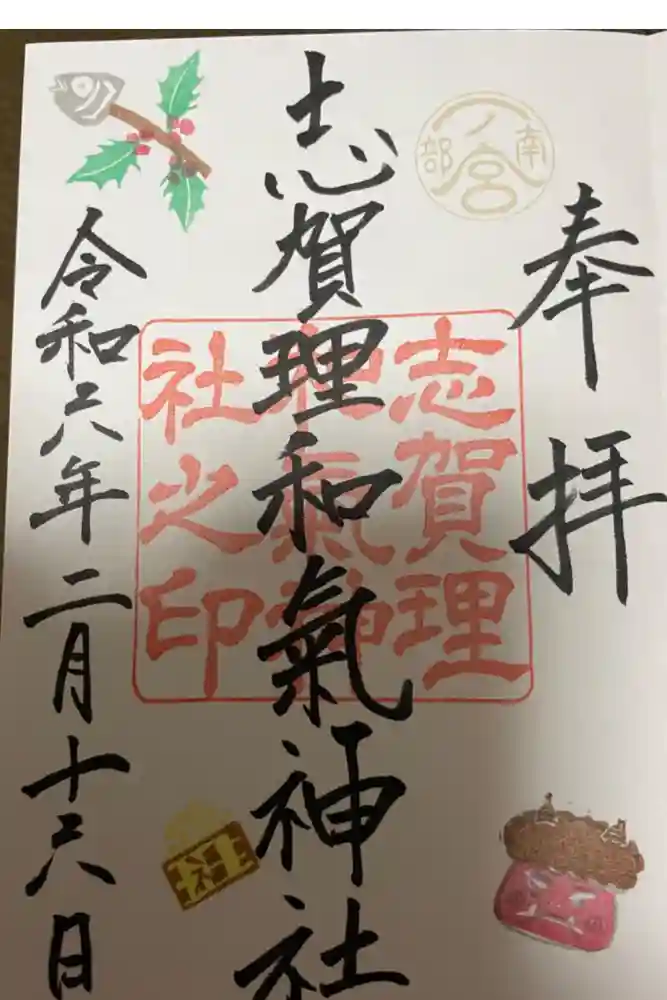 奉拝
南部
一ノ宮
志賀理和氣神社
志賀理
和氣神
社之印
令和六年二月十六日